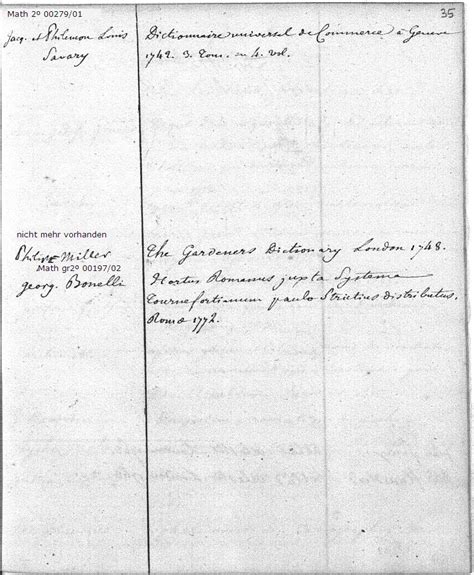 Math 2º 00279/01
35
Jacq. et Philemon Louis Dictionnaire universel de Commerce à Geneve
Savary 1742. 3. Tom. in 4. vol.
nicht mehr vorhanden
Philipe Miller The Gardeners Dictionary London 1748.
Math gr2º 00197/02
georg. Bonelli Hortus Romanus juxta Systema
Tournefortianum paulo Strictius distributus.
Romæ 1772.